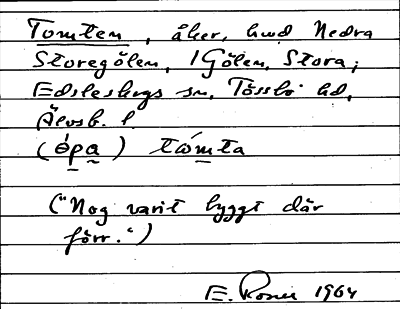 Tomten, åker, hmd Nedra
Storegölen, (Gölen, Stora;
Edsleskogs sn, Tössbo hd,
Älvsb. l.
(ǿpa) tώmta
("Nog varit byggt där
förr.")
E. Rosén 1964